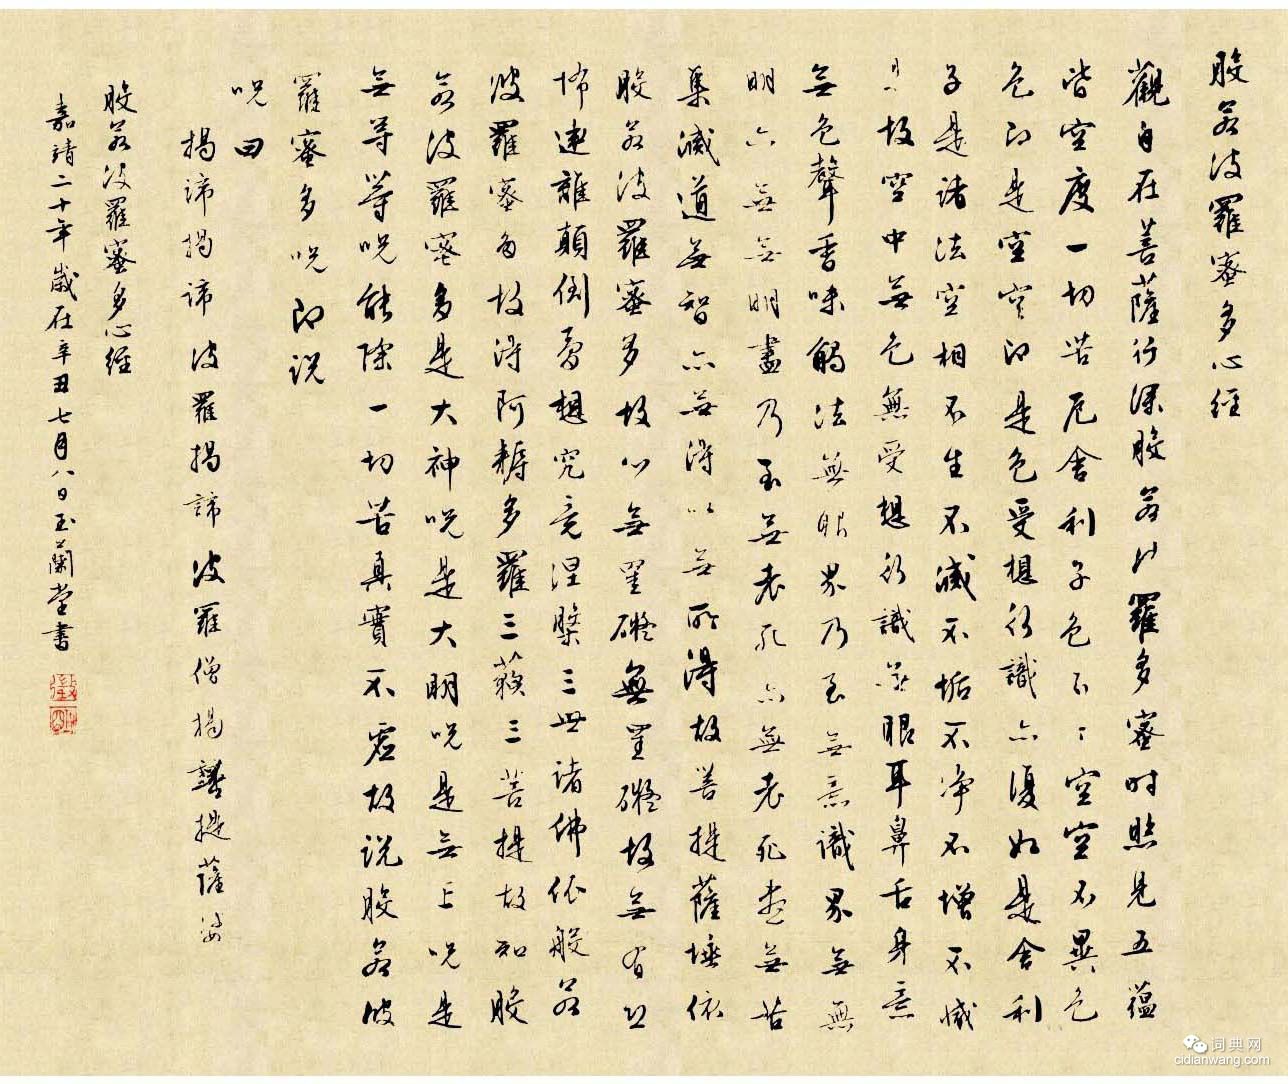 般若波羅蜜多心經
觀自在菩薩行深般若波羅多蜜時照見五蘊
皆空度一切苦厄舍利子色不空空不異色
色即是空空即是色受想行識亦復如是舍利
子是諸法空相不生不滅不垢不淨不增不減
是故空中無色無受想行識無眼耳鼻舌身意
無色聲香味觸法無眼界乃至無意識界無無
明亦無無明盡乃至無老死亦無老死盡無苦
集滅道無智亦無得以無所得故菩提薩埵依
般若波羅蜜多故心無罣礙無罣礙故無有恐
怖遠離顛倒夢想究竟涅槃三世諸佛依般若
波羅蜜多故得阿耨多羅三藐三菩提故知般
若波羅蜜多是大神咒是大明咒是無上咒是
無等等咒能除一切苦真實不虛故說般若波
羅蜜多咒即說
咒曰
揭諦揭諦波羅揭諦波羅僧揭諦菩提薩婆
般若波羅蜜多心經
嘉靖二十年歲在辛丑七月八日玉蘭堂書
徵明
词典网
cidianwang.com